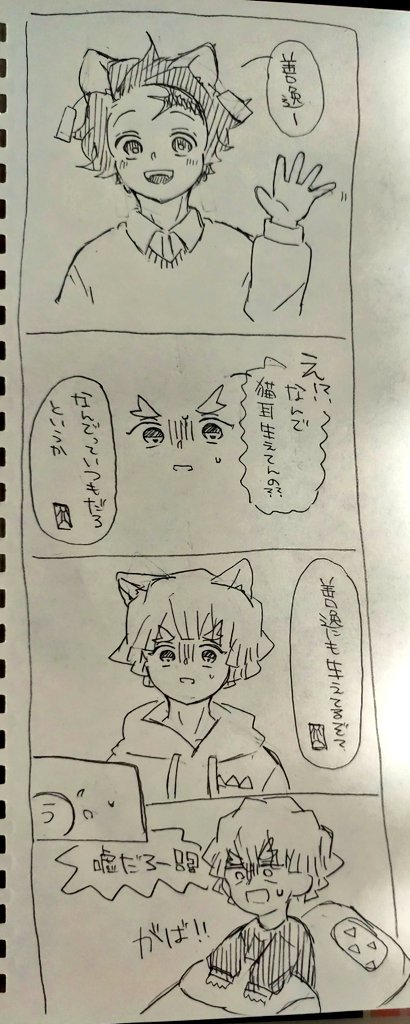 善逸ー
え!?
なんで
猫耳生えてんの??
なんでっていつもだろ
というか
善逸にも生えてるぞ?
う
嘘だろー
がば!!